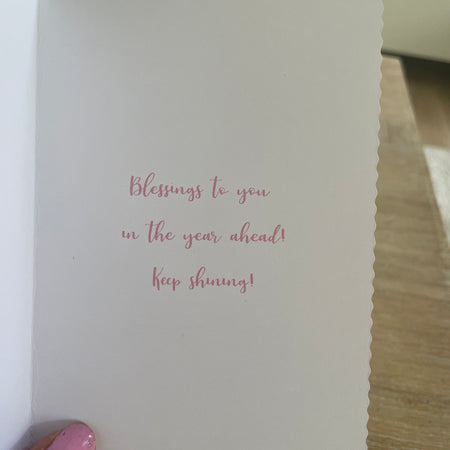 Blessings to you
in the year ahead!
Keep shining!